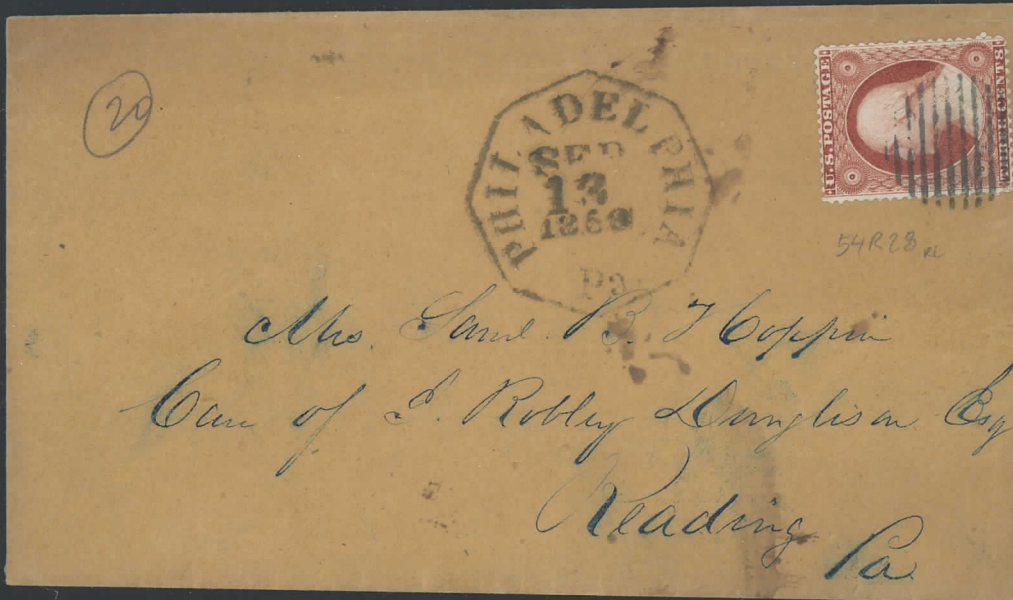 20
PHILADELPHIA
SEP
13
1860
Pa
U.S. POSTAGE
THREE CENTS
54R28 RL
Mrs. Saml. B. Hoppin
Care of J. Robley Dunglison Esq
Reading
Pa